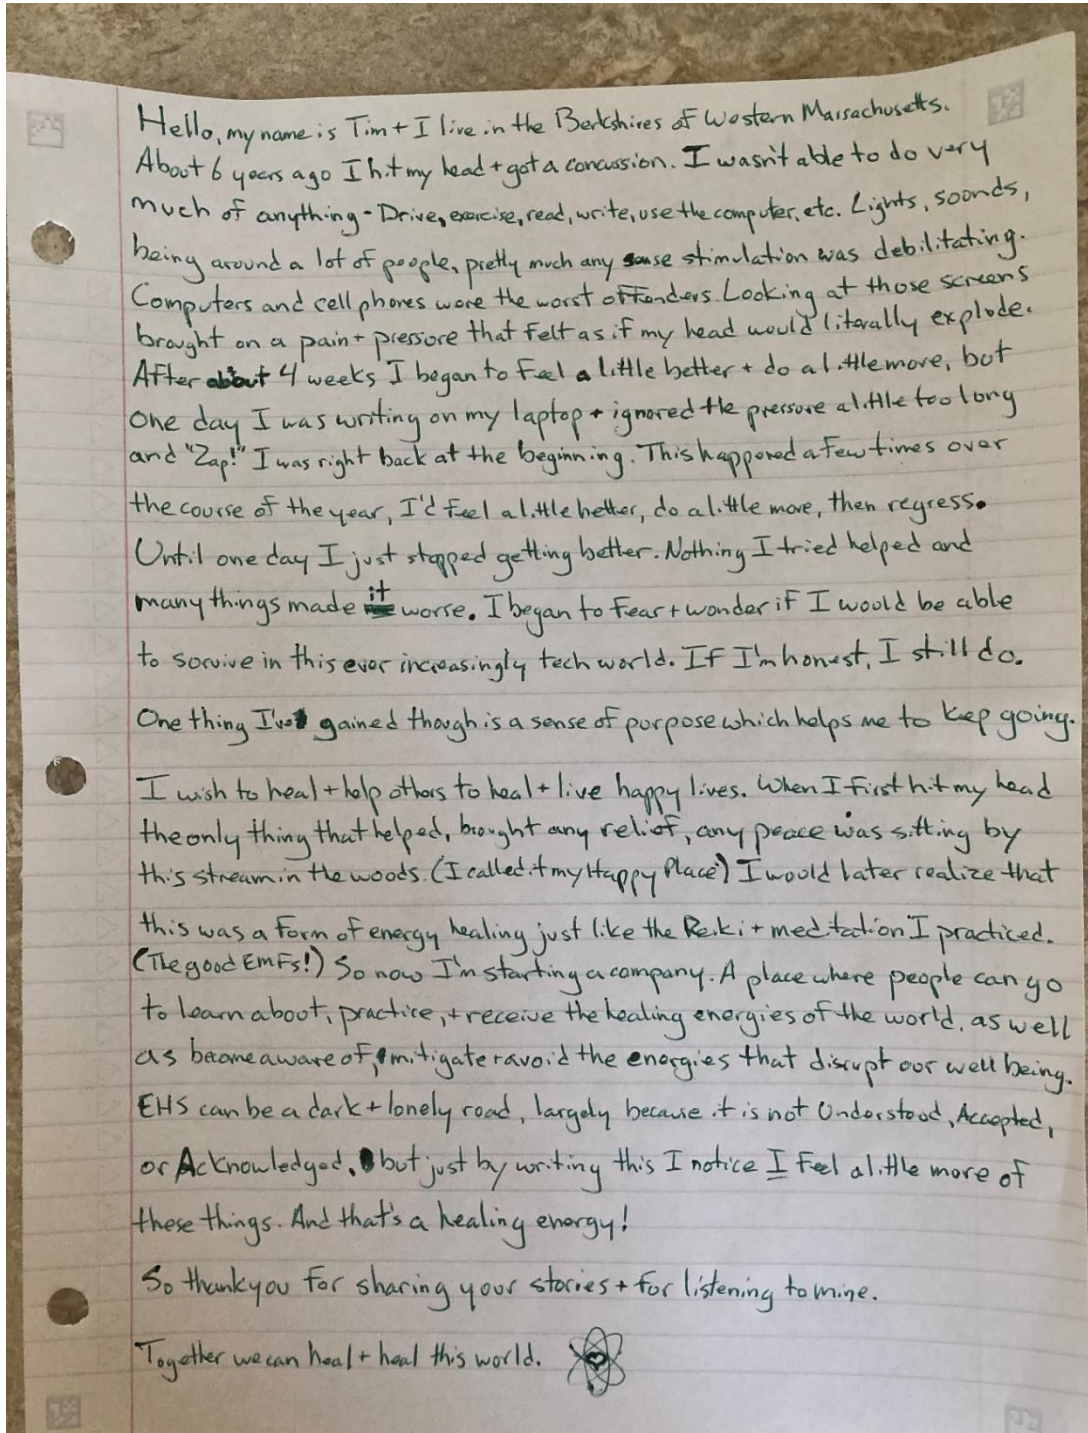 Hello, my name is Tim + I live in the Berkshires of Western Massachusetts.
About 6 years ago I hit my head + got a concussion. I wasn't able to do very
much of anything - Drive, exercise, read, write, use the computer, etc. Lights, sounds,
being around a lot of people, pretty much any sense stimulation was debilitating.
Computers and cell phones were the worst offenders. Looking at those screens
brought on a pain + pressure that felt as if my head would literally explode.
After about 4 weeks I began to feel a little better + do a little more, but
one day I was writing on my laptop + ignored the pressure a little too long
and "Zap!" I was right back at the beginning. This happened a few times over
the course of the year, I'd feel a little better, do a little more, then regress.
Until one day I just stopped getting better. Nothing I tried helped and
many things made it worse. I began to fear + wonder if I would be able
to survive in this ever increasingly tech world. If I'm honest, I still do.
One thing I've gained though is a sense of purpose which helps me to keep going.
I wish to heal + help others to heal + live happy lives. When I first hit my head
the only thing that helped, brought any relief, any peace was sitting by
this stream in the woods. (I called it my Happy Place) I would later realize that
this was a form of energy healing just like the Reiki + meditation I practiced.
(The good EMFs!) So now I'm starting a company. A place where people can go
to learn about, practice, + receive the healing energies of the world, as well
as become aware of, mitigate + avoid the energies that disrupt our well being.
EHS can be a dark + lonely road, largely because it is not Understood, Accepted,
or Acknowledged, but just by writing this I notice I feel a little more of
these things. And that's a healing energy!
So thankyou for sharing your stories + for listening to mine.
Together we can heal + heal this world.